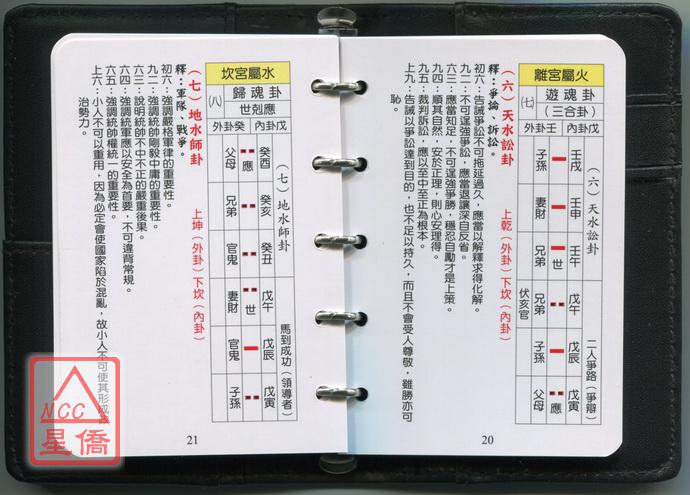 離宮屬火
(七)
遊魂卦
(三合卦)
外卦壬
內卦戊
(六)天水訟卦
二人爭路(爭辯)
子孫
壬戌
妻財
壬申
兄弟
世
壬午
伏亥官
兄弟
戊午
子孫
戊辰
父母
應
戊寅
(六)天水訟卦
上乾(外卦)下坎(內卦)
釋:爭論、訴訟。
初六:告誡爭訟不可拖延過久,應當以解釋求得化解。
九二:不可逞強爭訟,應當退讓深自反省。
六三:應當知足,不可逞強爭勝,穩忍自勵才是上策。
九四:順其自然,安於正理,則心安理得。
九五:裁判訴訟,應以至中至正為根本。
上九:告誡以爭訟達到目的,也不足以持久,而且不會受人尊敬,雖勝亦可
恥。
20
坎宮屬水
(八)
歸魂卦
世剋應
外卦癸
內卦戊
(七)地水師卦
馬到成功(領導者)
父母
應
癸酉
兄弟
癸亥
官鬼
癸丑
妻財
世
戊午
官鬼
戊辰
子孫
戊寅
(七)地水師卦
上坤(外卦)下坎(內卦)
釋:軍隊、戰爭。
初六:強調嚴格軍律的重要性。
九二:強調統帥剛毅中庸的重要性。
六三:說明統帥不中不正的嚴重後果。
六四:強調統軍應以安全為首要,不可違背常規。
六五:強調統帥權統一的重要性。
上六:小人不可以重用,因為必定會使國家陷於混亂,故小人不可使其形成政
治勢力。
21
NCC
星僑